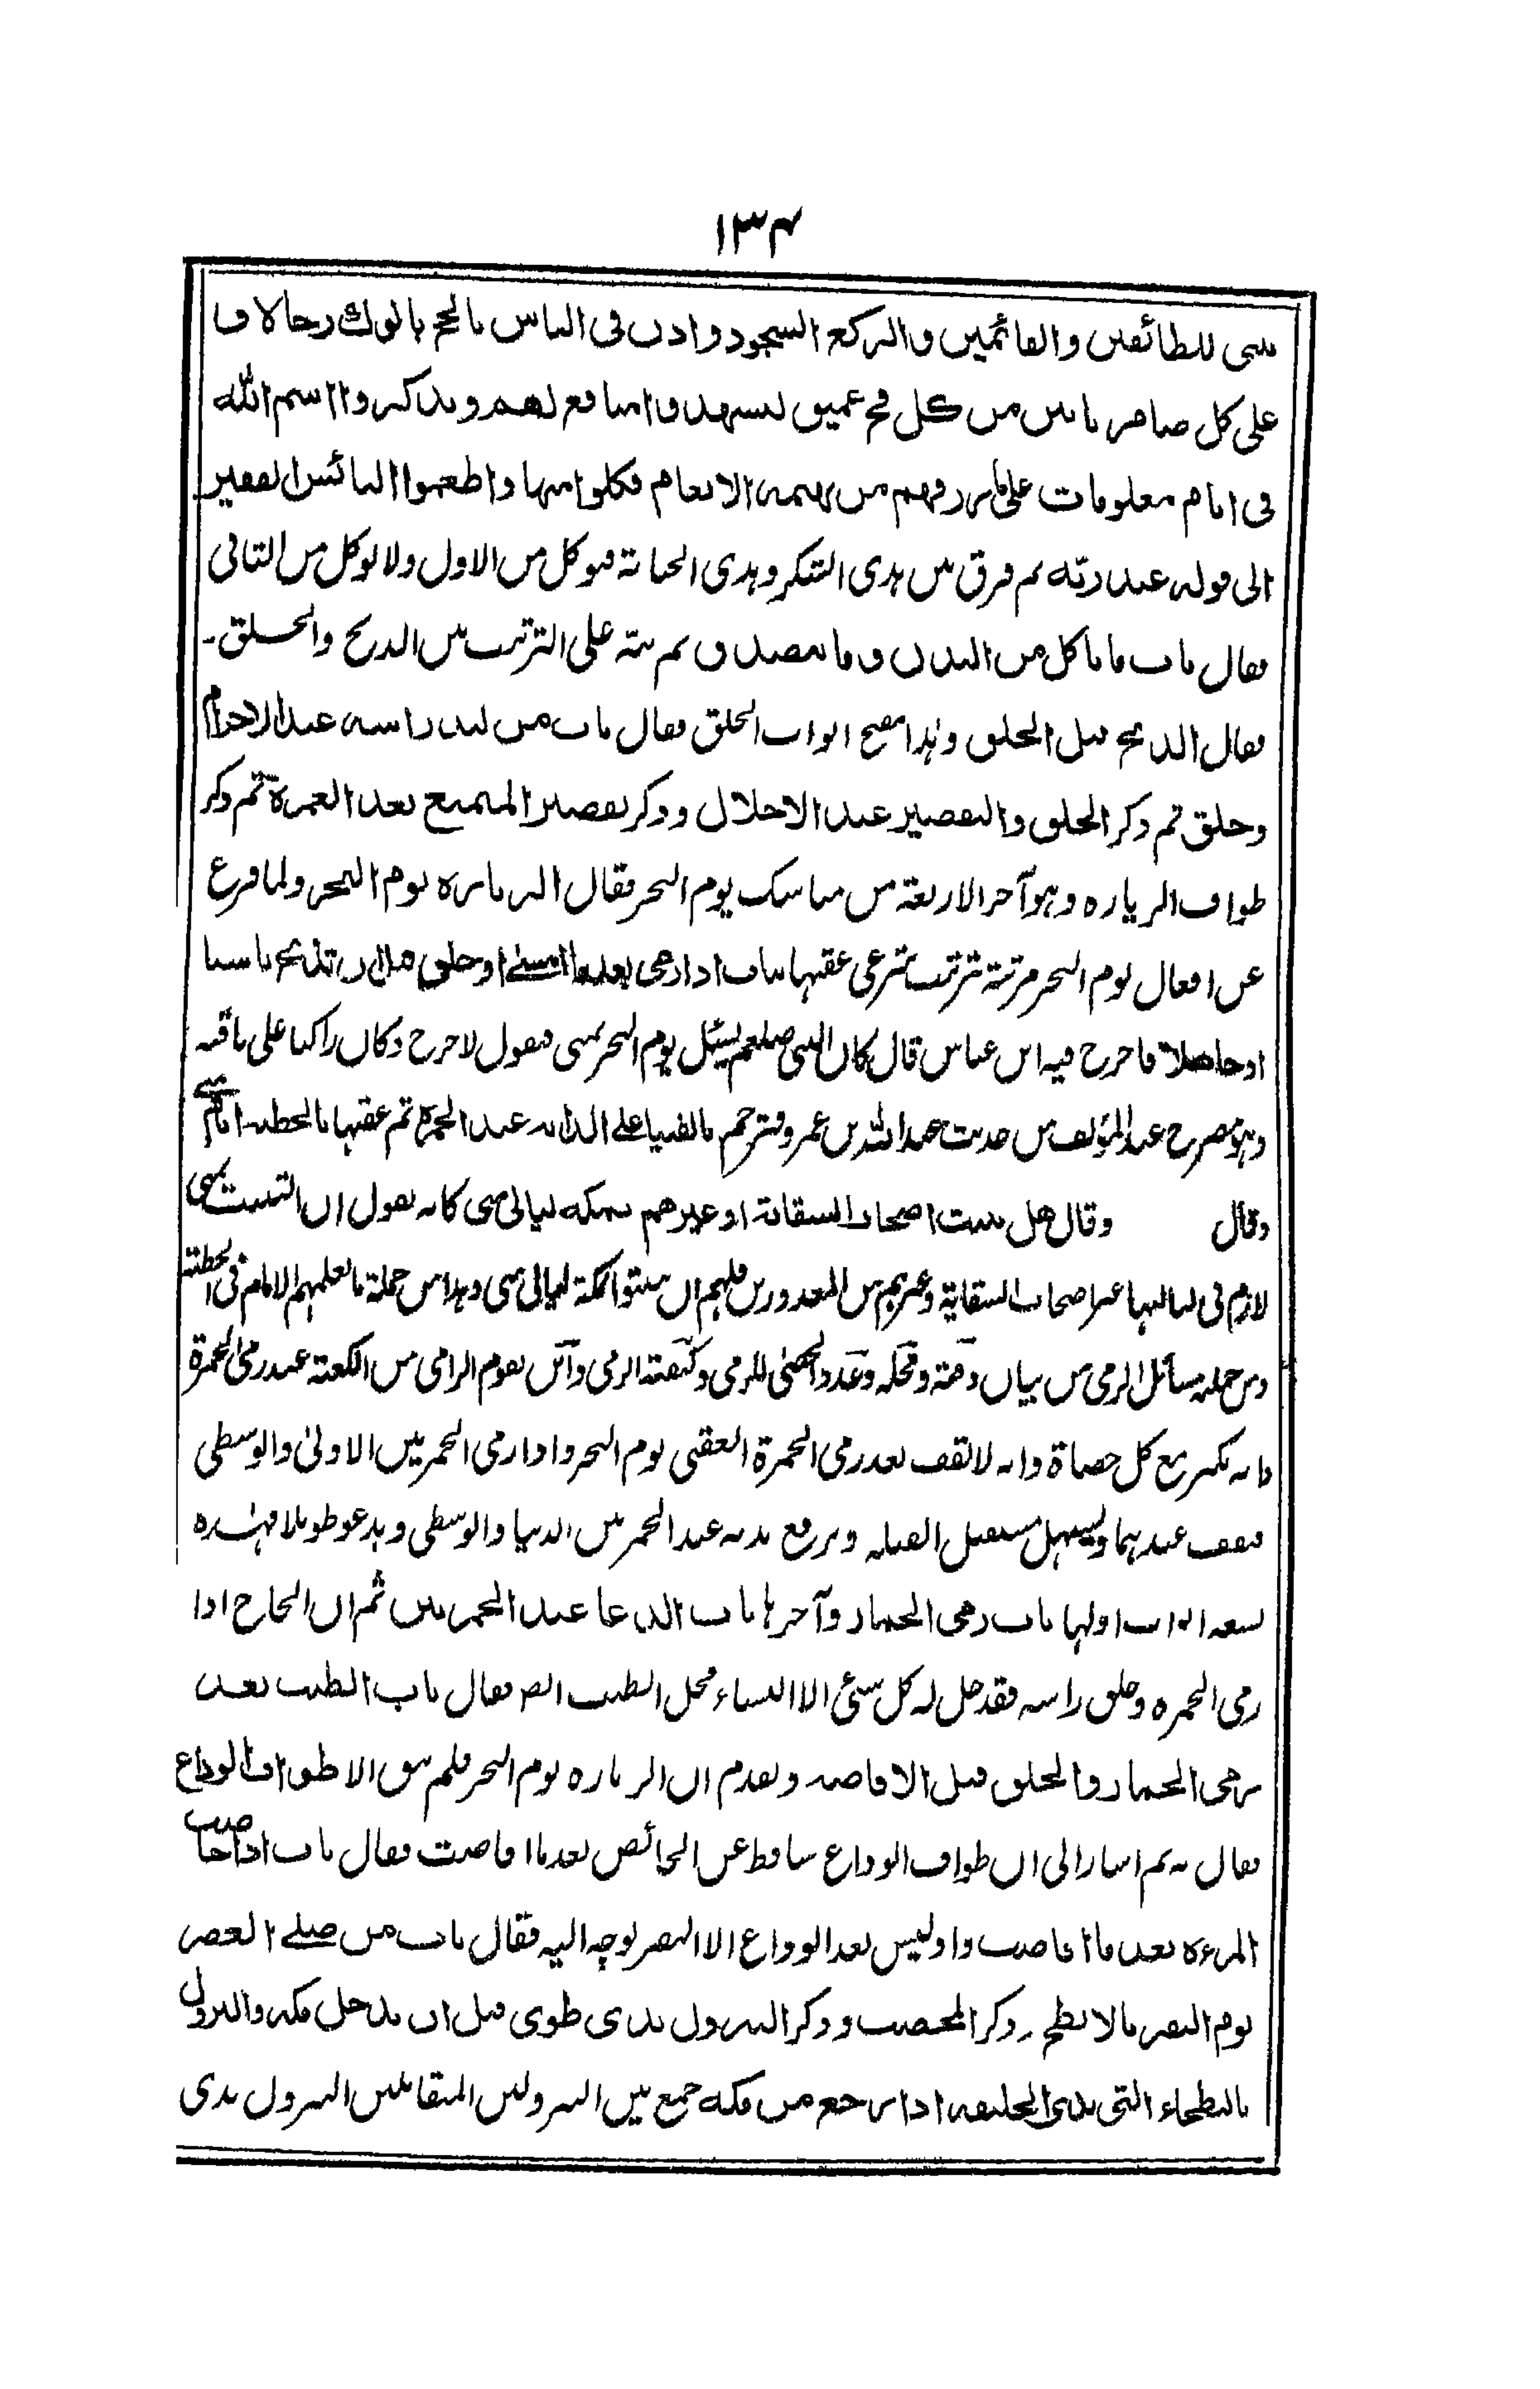 ١٣٤
بيتي للطائفين والقائمين والركع السجود واذن في الناس بالحج ياتوك رجالا و
على كل ضامر ياتين من كل فج عميق ليشهدوا منافع لهم ويذكروا اسم الله
في ايام معلومات على ما رزقهم من بهيمة الانعام فكلوا منها واطعموا البائس الفقير
الى قوله عند ربه ثم فرق بين هدي التشكر وهدي الجناية فيوكل من الاول ولا يوكل من الثاني
فقال باب ما ياكل من البدن وما يتصدق ثم نبه على الترتيب بين الذبح والحلق ـ
فقال الذبح قبل الحلق وهذا مفتح ابواب الحلق فقال باب من لبد راسه عند الاحرام
وحلق ثم ذكر الحلق والتقصير عند الاحلال وذكر تقصير المتمتع بعد العمرة ثم ذكر
طواف الزيارة وهو آخر الاربعة من مناسك يوم النحر فقال الزيارة يوم النحر ولما فرغ
عن افعال يوم النحر مرتبة ترتيب شرعي عقبها بباب اذا رمى بعد ما امسى او حلق قبل ان يذبح ناسيا
او جاهلا فاخرج فيه ابن عباس قال كان النبي صلعم يسئل يوم النحر بمنى فيقول لا حرج وكان راكبا على ناقته
وهو مصرح عند المؤلف من حديث عبد الله بن عمرو فترجم بالفتيا على الدابة عند الجمرة ثم عقبها بالخطبة ايام منى
وقال وقال هل يبيت اصحاب السقاية او غيرهم بمكة ليالي منى كانه يقول ان التبييت بمنى
لازم في لياليها غير اصحاب السقاية وغيرهم من المعذورين فلهم ان يبيتوا بمكة ليالي منى وهذا من جملة ما يعلمهم الامام في الخطبة
ومن جملة مسائل الرمي من بيان وقته ومحله وعدد الحصى للرمي وكيفية الرمي واين يقوم الرامي من الكعبة عند رمي الجمرة
وانه يكبر مع كل حصاة وانه لا يقف بعد رمي الجمرة العقبى يوم النحر واذا رمى الجمرتين الاولى والوسطى
فيقف عندهما ويسهل مستقبل القبلة ويرفع يديه عند الجمرتين الدنيا والوسطى ويدعو طويلا فهذه
تسعة ابواب اولها باب رمي الجمار وآخرها باب الدعا عند الجمرتين ثم ان الحاج اذا
رمى الجمرة وحلق راسه فقد حل له كل شئ الا النساء فحل الطيب ايضا فقال باب الطيب بعد
رمي الجمار والحلق قبل الافاضة وتقدم ان الزيارة يوم النحر فلم يبق الا طواف الوداع
فقال به ثم اشار الى ان طواف الوداع ساقط عن الحائض بعد ما افاضت فقال باب اذا حاضت
المرءة بعد ما افاضت واذ ليس بعد الوداع الا النفر توجه اليه فقال باب من صلى العصر
يوم النفر بالابطح وذكر المحصب وذكر النزول بذي طوى قبل ان يدخل مكة والنزول
بالبطحاء التي بذي الحليفة اذا رجع من مكة جمع بين النزولين المتقابلين النزول بذي